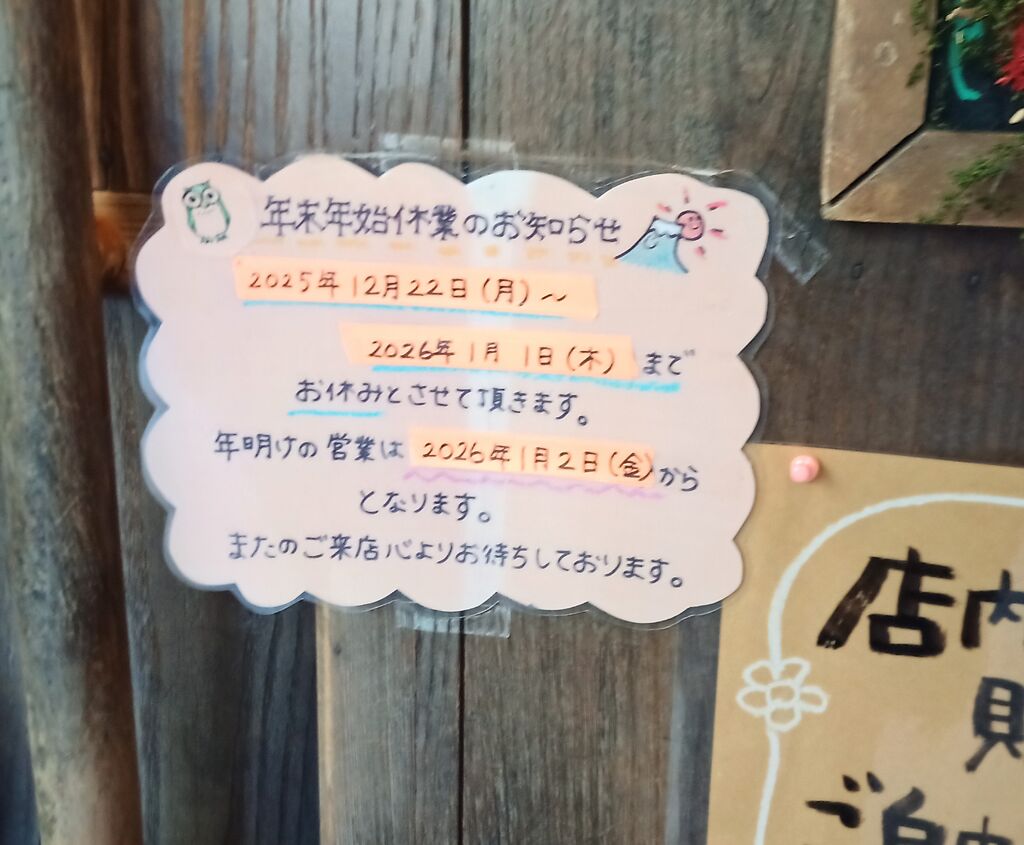 年末年始休業のお知らせ
2025年12月22日(月)~
2026年1月 1日(木)まで
お休みとさせて頂きます。
年明けの営業は2026年1月2日(金)から
となります。
またのご来店心よりお待ちしております。
店内
ご自由